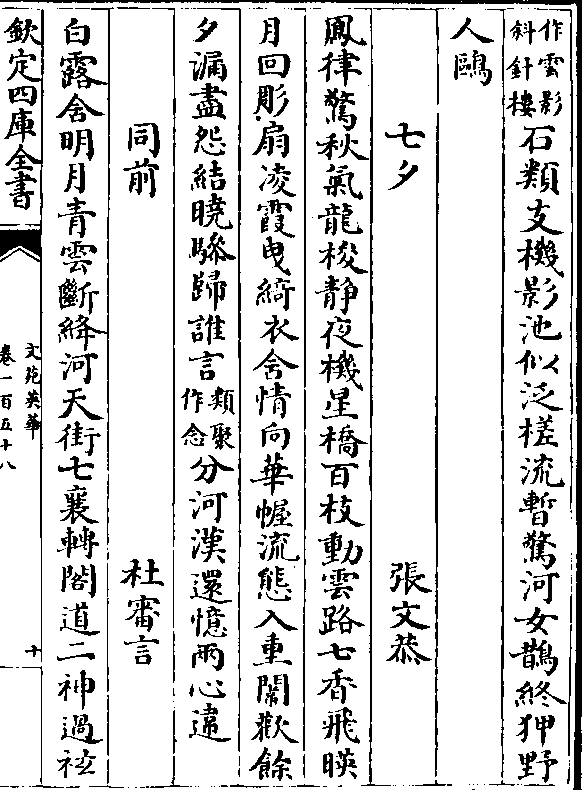 作雲影
斜針樓
石類支機影池似泛槎流暫驚河女鵲終狎野
人鷗
七夕　張文恭
鳳律驚秋氣龍梭静夜機星橋百枝動雲路七香飛映
月回彫扇凌霞曳綺衣含情向華幄流態入重闈歡餘
夕漏盡怨結曉驂歸誰言
類聚
作念
分河漢還憶兩心違
同前　杜審言
白露含明月青雲斷絳河天街七襄轉閣道二神過袨
欽定四庫全書
文苑英華
卷一百五十八
十